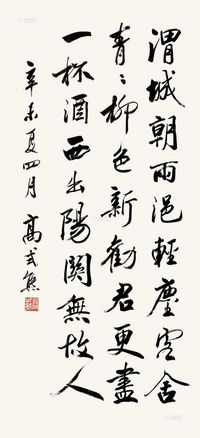 渭城朝雨浥輕塵客舍
青〻柳色新勸君更盡
一杯酒西出陽關無故人
辛未夏四月 高式熊